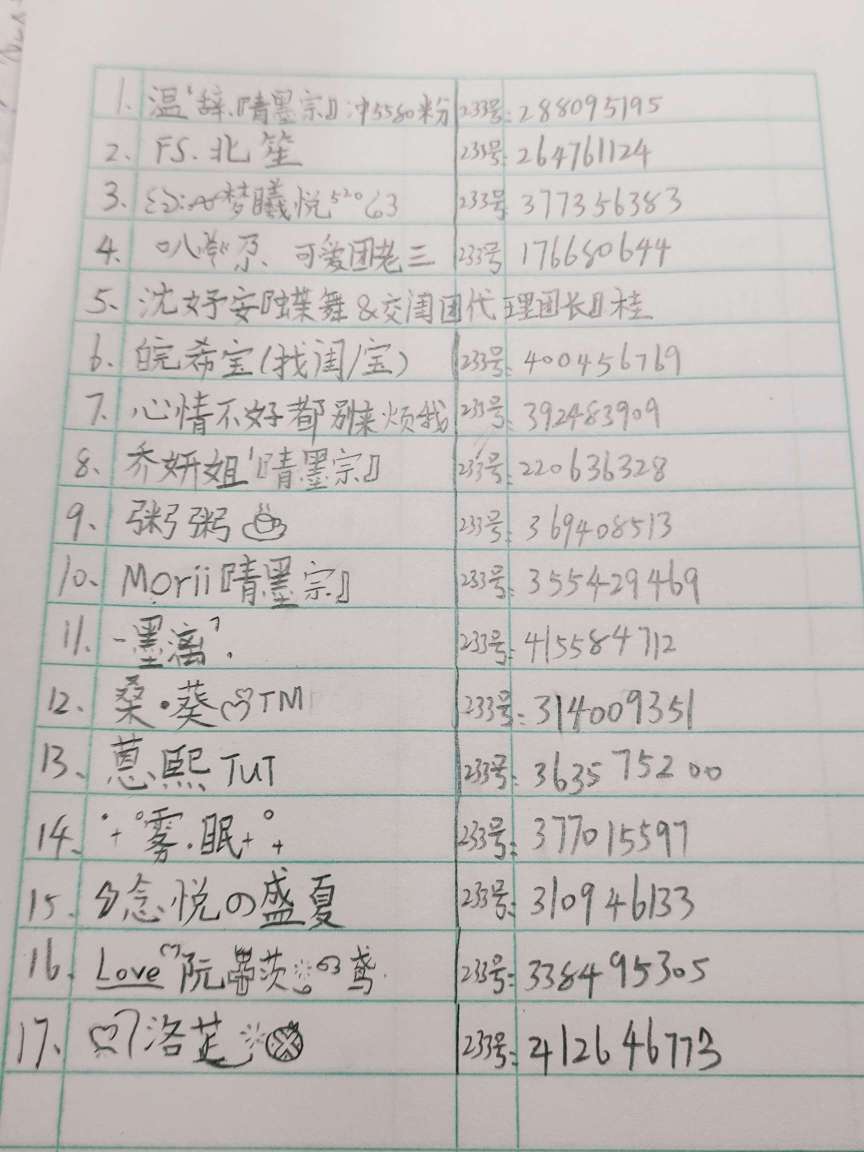 1. 温'辞.『晴墨宗』冲5580粉 233号: 288095195
2. FS.北笙 233号: 264761124
3. 梦曦悦⁵²⁰63 233号 377356383
4. 可爱团老三 233号 176680644
5、沈妤安『蝶舞&交闺团代理团长』桂
6. 皖希宝(找闺/宝) 233号: 400456769
7. 心情不好都别来烦我 233号: 392483909
8、乔妍姐'『晴墨宗』 233号: 220636328
9、粥粥 233号: 369408513
10、Morii『晴墨宗』 233号: 355429469
11. 一墨漓 233号: 415584712
12. 桑•葵♡TM 233号: 314009351
13、蒽.熙TUT 233号: 363575200
14. 雾.眠 233号: 377015597
15. 念悦の盛夏 233号: 310946133
16. Love♡阮茨鸢 233号: 338495305
17. ♡洛芷 233号: 412646773